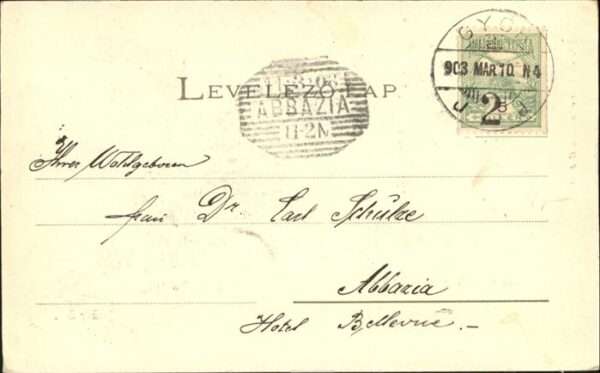 GYŐR
903 MAR. 10. N4
2
LEVELEZŐ LAP
ABBAZIA
11-2N
Ihrer Wohlgeboren
Frau Dr. Carl Schülze
Abbazia
Hotel Bellevue.-